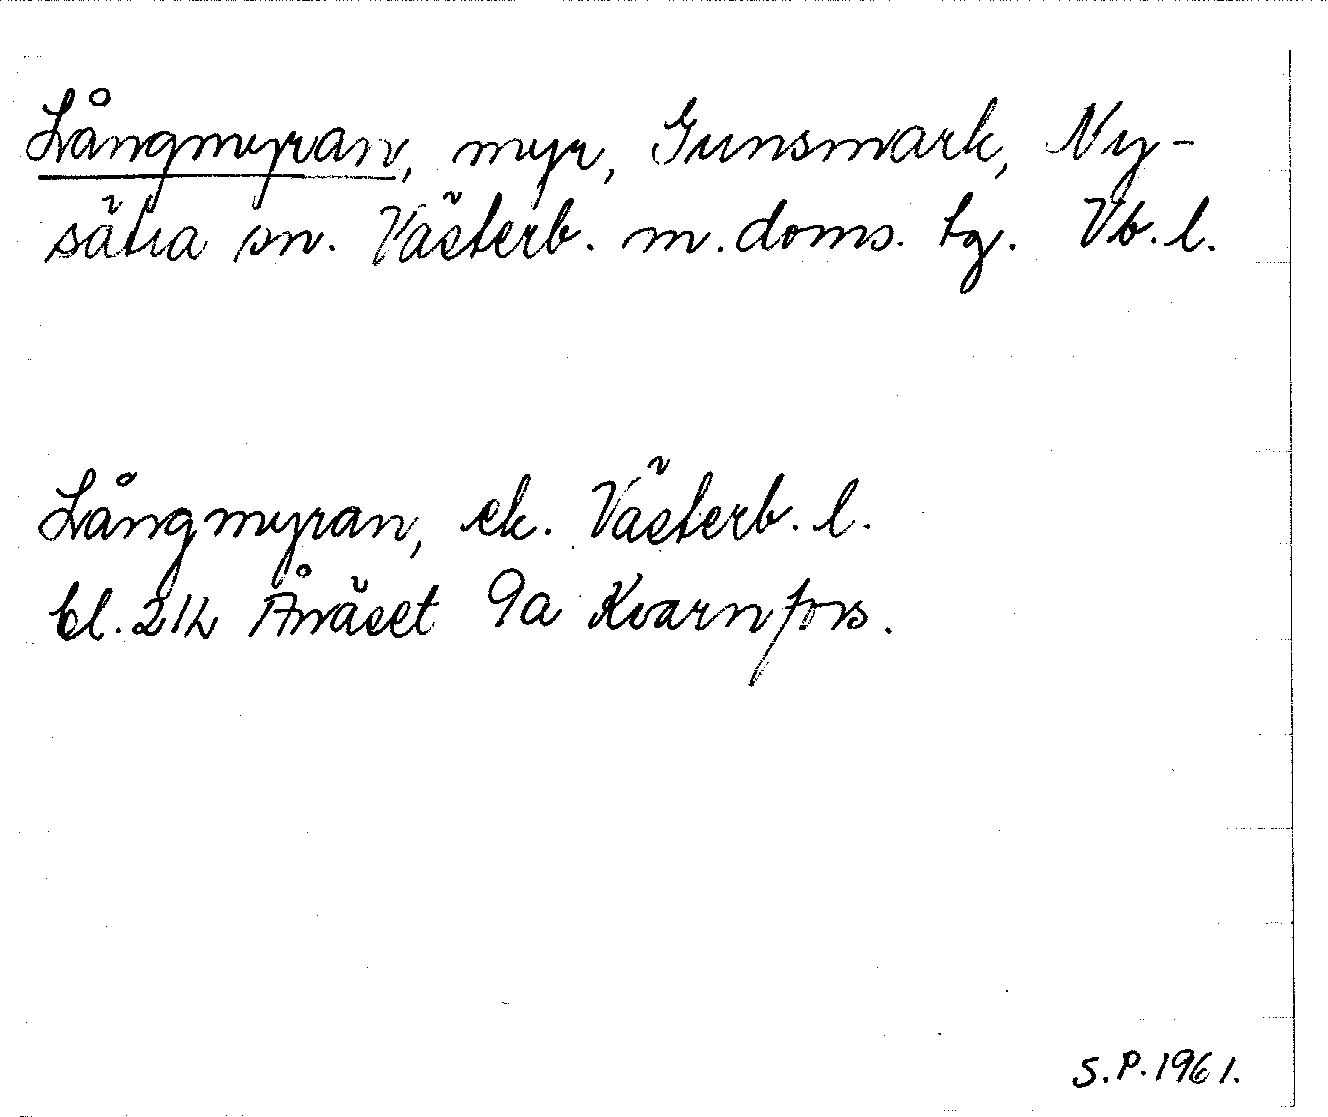 Långmyran, myr, Gunsmark, Ny-
sätra sn. Västerb. m. doms. tg. Vb. l.
Långmyran, ek. Västerb. l.
bl. 21L Ånäset 9a Kvarnfors.
S.P. 1961.